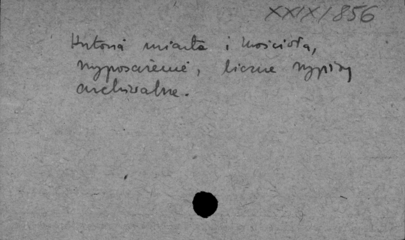 XXIX/856
Historia miasta i kościoła,
wyposażenie, liczne wypisy
archiwalne.